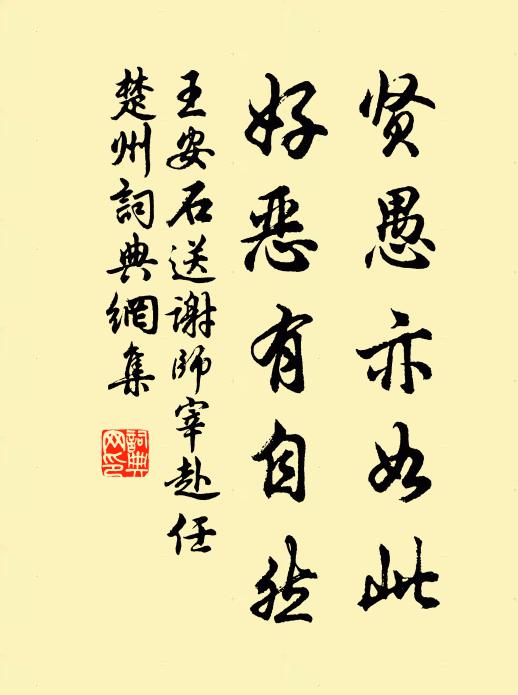 贤愚亦如此
好恶有自然
王安石送谢师宰赴任
楚州詞典網集
詞典网印